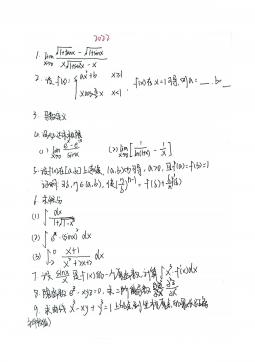 2022
1. lim x→0 (√(1+tanx) - √(1+sinx)) / (x√(1+sinx) - x)
2. 设 f(x) = { ax²+b x≥1
xcos(π/2)x x<1 , f(x)在x=1可导,则a=__. b=__
3. 导数定义
4. 极限
(1) lim x→0 (eˣ-e⁻ˣ)/sinx (2) lim x→0 [1/ln(1+x) - 1/x]
5. 设f(x)在[a,b]上连续,(a,b)内可导,a>0,且f(a)=f(b)=1
证明:∃ξ,η∈(a,b),使(η/ξ)ⁿ⁻¹ = f(ξ)+(ξ/n)f'(ξ)
6. 求积分
(1) ∫ dx/(1+√(1-x²))
(2) ∫ eˣ (sinx)² dx
(3) ∫ (x+1)/(x²+2x+2) dx
7. 设 sinx/x 是f(x)的一个原函数,计算∫x³f'(x)dx
8. 隐函数 eᶻ-xyz=0, 求二阶偏导数
9. 求曲线 x³-xy+y³=1 上的点到坐标原点的最长